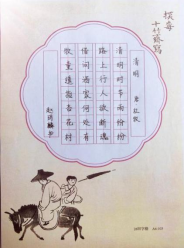 十竹斋写
清明 唐 杜牧
清明时节雨纷纷
路上行人欲断魂
借问酒家何处有
牧童遥指杏花村